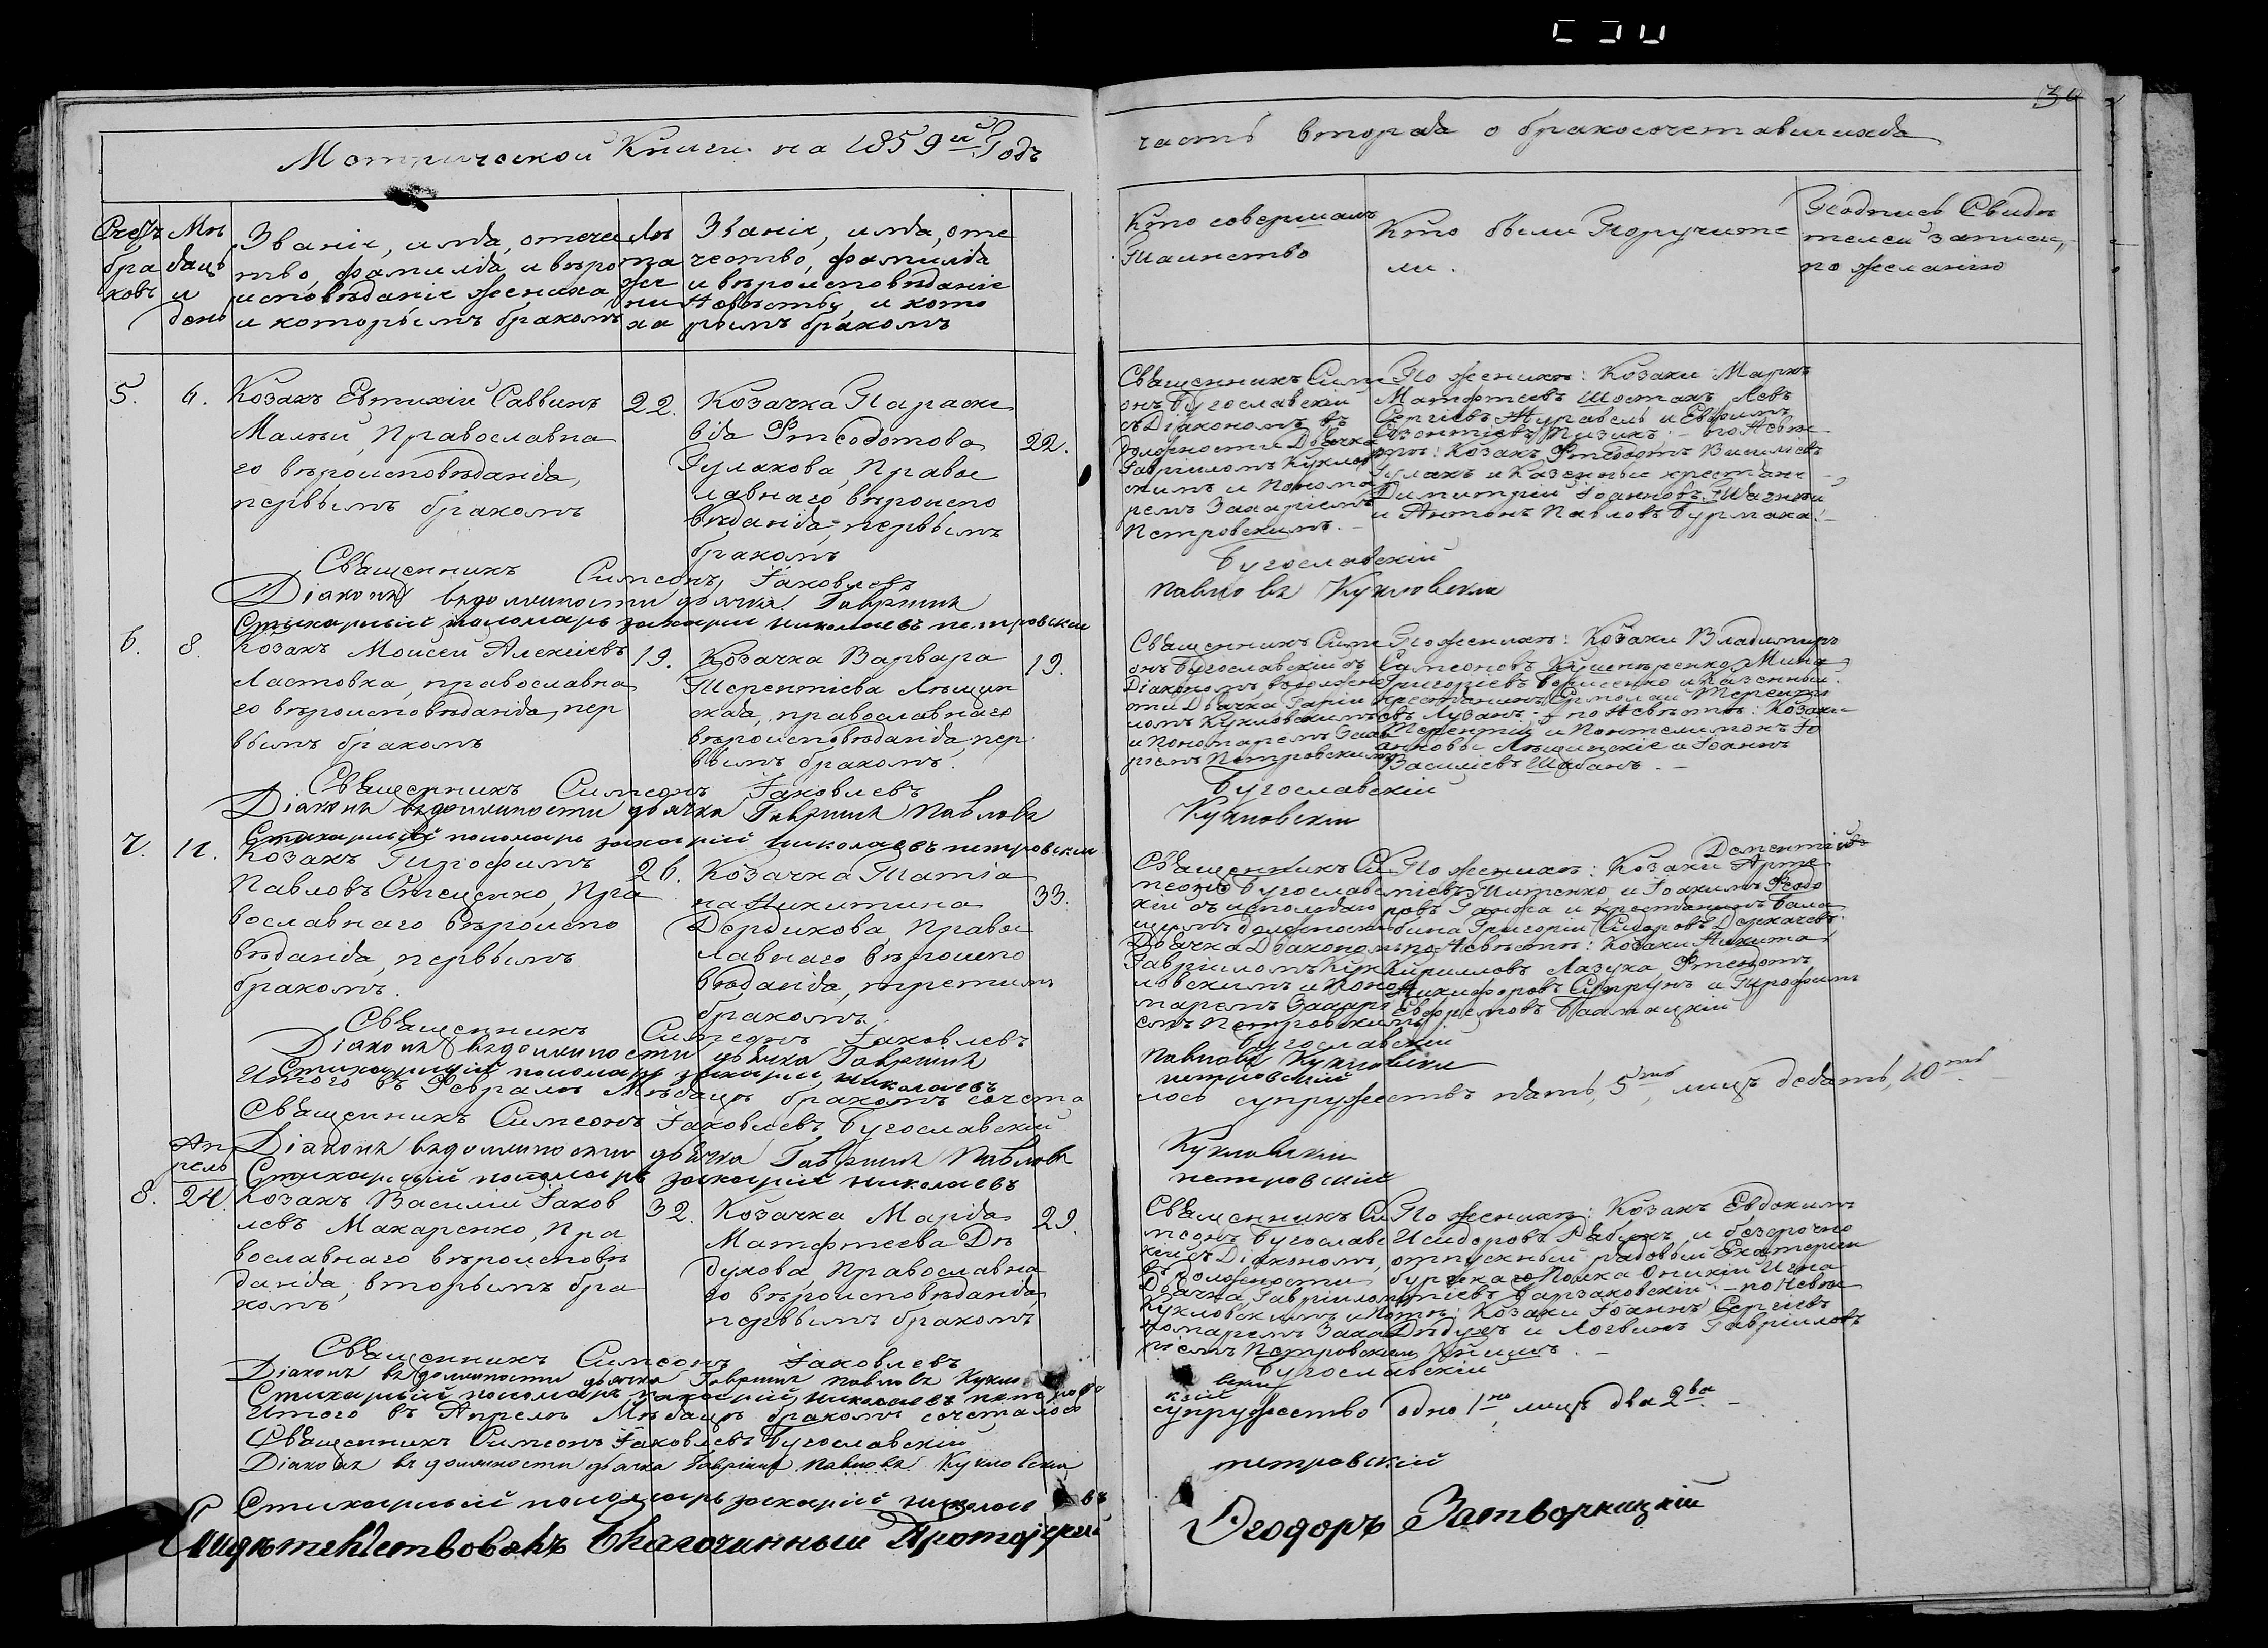 Метрической Книги на 1859й Годъ
часть вторая о бракосочетавшихся
Счетъ браковъ
Мѣсяцъ и день
Званіе, имя, отечество, фамилія и вѣро
исповѣданіе жениха
и которымъ бракомъ
Лѣта жениха
Званіе, имя, оте
чество, фамилія
и вѣроисповѣданіе
Невѣсты, и кото
рымъ бракомъ
Кто совершалъ
Таинство
Кто были Поручите
ли.
Подписи Свидѣ
телей записи,
по желанію
5.
Козакъ Евтихій Саввинъ
Малый, Православна
го вѣроисповѣданія,
первымъ бракомъ
22.
Козачка Параске
вія Ѳеодотова
Гулакова, Правос
лавнаго вѣроиспо
вѣданія, первымъ
бракомъ
22.
Священникъ Симе
онъ Бугославскій
съ Діакономъ въ
должности Дьячка
Гавріиломъ Кукловскимъ и Понома
ремъ Захаріемъ
Петровскимъ.
По женихѣ: Козаки Марко
Матфеевъ Шостакъ, Левъ
Сергіевъ Журавель и Евфимъ
по Невѣс
тѣ: Козакъ Ѳеодотъ Василіевъ
Гулакъ и Казенные крестьяне
Димитрій Іоанновъ
и Антонъ Павловъ Бурмака.
Священникъ Симеонъ Іаковлевъ Бугославскій
Діаконъ въ должности дьячка Гавріилъ Павловъ Кукловскій
Стихарный пономарь Захарій Николаевъ Петровскій
6.
8.
Козакъ Моисей Алексіевъ
Ластовка, православна
го вѣроисповѣданія, пер
вымъ бракомъ
19.
Козачка Варвара
Терентіева Лѣщин
ская, православнаго
вѣроисповѣданія, пер
вымъ бракомъ.
19.
Священникъ Симе
онъ Бугославскій съ
Діакономъ въ должно
сти Дьячка Гаврі
иломъ Кукловскимъ
и Пономаремъ Заха
ріемъ Петровскимъ
По женихѣ: Козаки Владимиръ
Самсоновъ Кушнѣренко, Мина
Григоріевъ Борисенко и Казенный
крестьянинъ Ермолай Терентіевъ Лузанъ; по Невѣстѣ: Козаки
Терентій и Пантелимонъ Іо
анновы Лѣщинскіе и Іоаннъ
Василіевъ Шабанъ.
Священникъ Симеонъ Іаковлевъ Бугославскій
Діаконъ въ должности дьячка Гавріилъ Павловъ Кукловскій
Стихарный пономарь Захарій Николаевъ Петровскій
7.
Козакъ
Павловъ Стеценко, Пра
вославнаго вѣроиспо
вѣданія, первымъ
бракомъ.
26.
Козачка Татіа
на Никитина
Дердикова, Правос
лавнаго вѣроиспо
вѣданія, третимъ
бракомъ.
33.
Священникъ Си
меонъ Бугославс
кій съ исполняю
щимъ должность
Дьячка Діакономъ
Гавріиломъ Кук
ловскимъ и Поно
маремъ Захарі
емъ Петровскимъ
По женихѣ: Козаки
и Іоакимъ Ѳеодо
ровъ и крестьянинъ
Григорій Сидоровъ
по Невѣстѣ: Козаки Никита
Кирилловъ Лазука, Ѳеодотъ
Никифоровъ Супрунъ и
Священникъ Симеонъ Іаковлевъ Бугославскій
Діаконъ въ должности дьячка Гавріилъ Павловъ Кукловскій
Стихарный пономарь Захарій Николаевъ Петровскій
Итого въ Февралѣ Мѣсяцѣ бракомъ сочета
лось супружествъ пять, 5ть, лицъ десять, 10ть
Священникъ Симеонъ Іаковлевъ Бугославскій
Діаконъ въ должности дьячка Гавріилъ Павловъ Кукловскій
Стихарный пономарь Захарій Николаевъ Петровскій
Апрель
8.
Козакъ Василій Іаков
левъ Макаренко, Пра
вославнаго вѣроисповѣ
данія, вторымъ бра
комъ
32.
Козачка Марія
Матфеева Дѣ
духова, Православна
го вѣроисповѣданія,
первымъ бракомъ
29.
Священникъ Си
меонъ Бугославс
кій съ Діакономъ,
въ должности
Дьячка Гавріиломъ
Кукловскимъ и По
номаремъ Заха
ріемъ Петровскимъ
По женихѣ: Козакъ Евдокимъ
Исидоровъ Рябухъ, и безсрочно
отпускный рядовой Екатерин
бургскаго Полка
по Невѣс
тѣ: Козаки Іоаннъ Сергіевъ
Дѣдухъ и Логвинъ Гавріиловъ
Священникъ Симеонъ Іаковлевъ Бугославскій
Діаконъ въ должности дьячка Гавріилъ Павловъ Кукловскій
Стихарный пономарь Захарій Николаевъ Петровскій
Итого въ Апрелѣ Мѣсяцѣ бракомъ сочеталось
супружество одно 1но, лицъ два 2ва.
Священникъ Симеонъ Іаковлевъ Бугославскій
Діаконъ въ должности дьячка Гавріилъ Павловъ Кукловскій
Стихарный пономарь Захарій Николаевъ Петровскій
Свидѣтельствовалъ Благочинный Протоіерей Ѳеодоръ Затворницкій